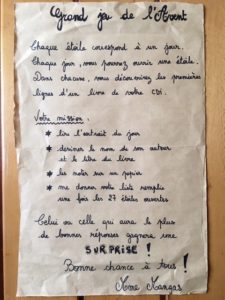 Grand jeu de l'Avent
Chaque étoile correspond à un jour.
Chaque jour, vous pouvez ouvrir une étoile.
Dans chacune, vous découvrirez les premières
lignes d'un livre de votre CDI.
Votre mission :
* lire l'extrait du jour
* deviner le nom de son auteur
et le titre du livre
* les noter sur un papier
* me donner votre liste remplie
une fois les 27 étoiles ouvertes
Celui ou celle qui aura le plus
de bonnes réponses gagnera une
SURPRISE !
Bonne chance à tous !
Mme Mangas